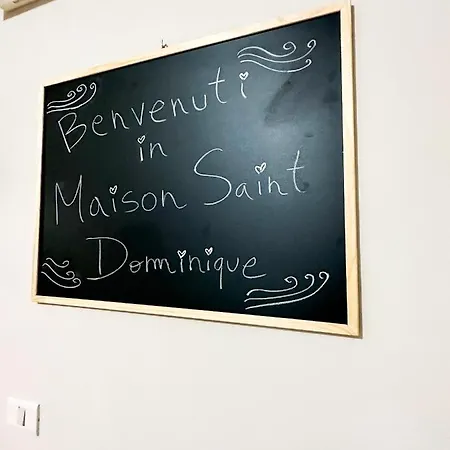 Benvenuti
in
Maison Saint
Dominique